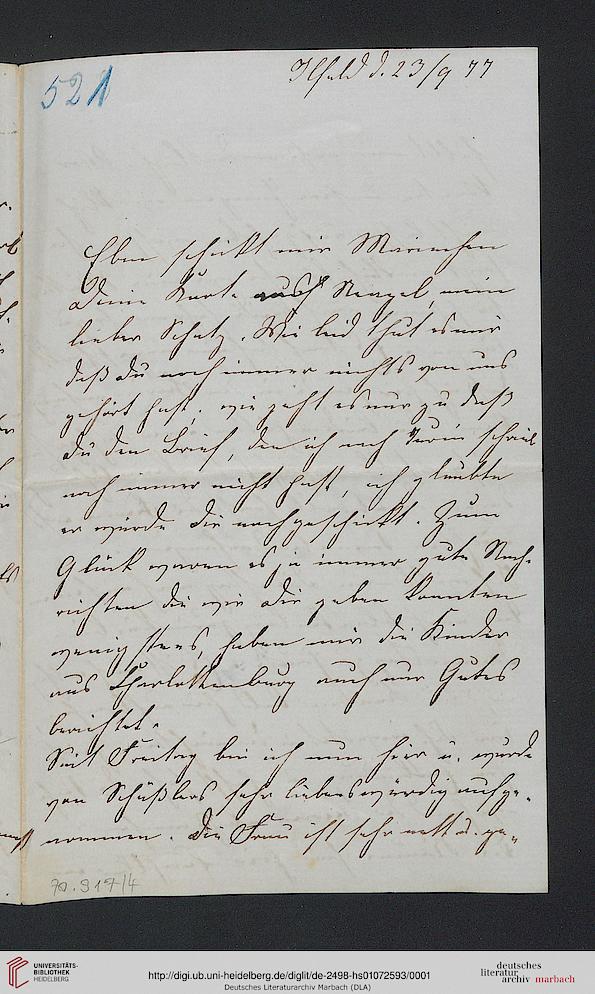 521
Ilfeld d. 23/9 77
Eben schickt mir Marienchen
Deine Karte nach Neapel, mein
lieber Schatz. Wie leid thut es mir
daß du noch immer nichts von uns
gehört hast, wie geht es nur zu daß
du den Brief, den ich nach Turin schrieb
noch immer nicht hast, ich glaubte
er würde dir nachgeschickt. Zum
Glück waren es ja immer gute Nach-
richten die wir dir geben konnten
wenigstens, haben mir die Kinder
aus Charlottenburg auch nur Gutes
berichtet.
Seit Freitag bin ich nun hier u. wurde
von Schüßlers sehr liebenswürdig aufge-
nommen. Die Frau ist sehr nett u. ge-
70.917/4
UNIVERSITÄTS-
BIBLIOTHEK
HEIDELBERG
http://digi.ub.uni-heidelberg.de/diglit/de-2498-hs01072593/0001
Deutsches Literaturarchiv Marbach (DLA)
deutsches
literatur
archiv marbach